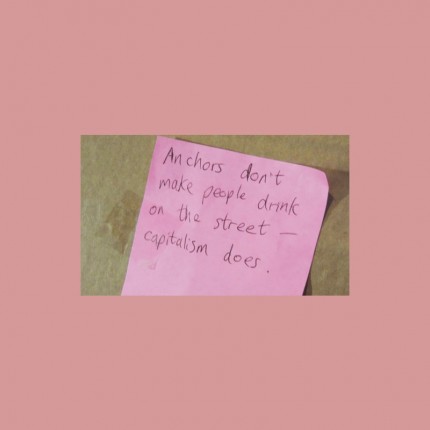 Anchors don't
make people drink
on the street —
capitalism does.